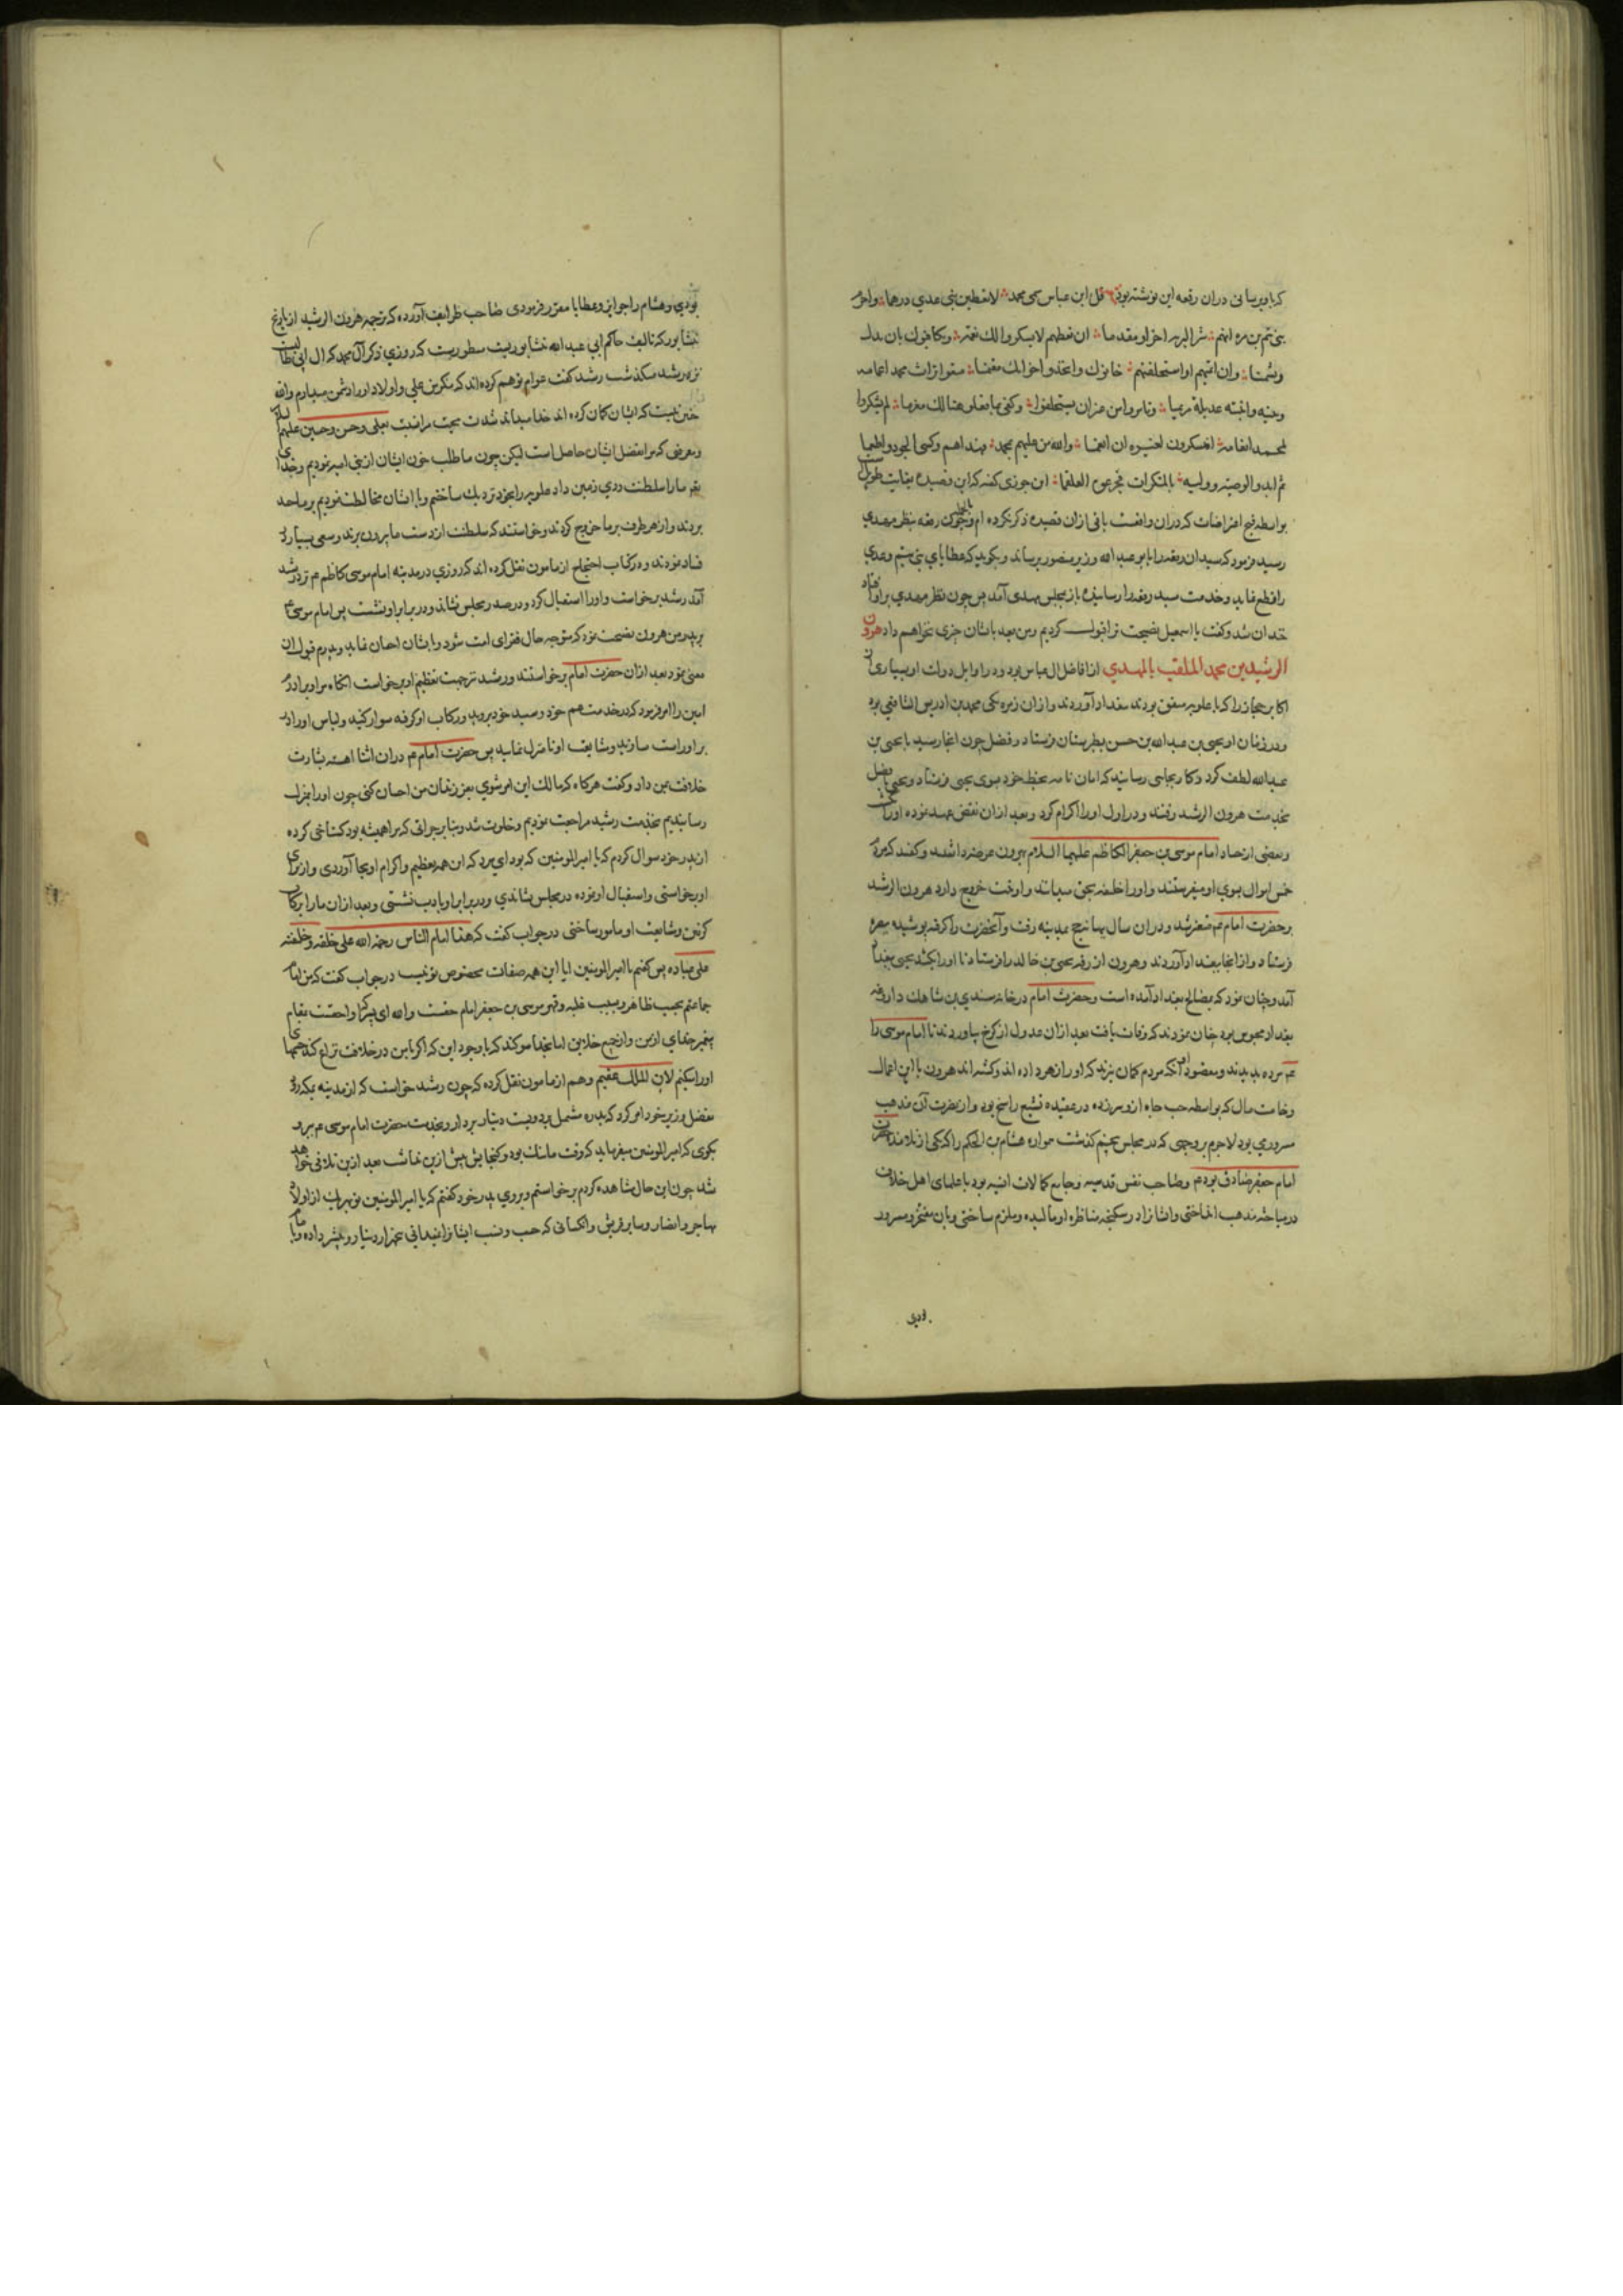 که باو برسانی دران رقعه این نوشته بود قل لابن عباس سمی محمد لا تعطین بنی عدی درهما واحرم
بنی تیم بن مره انهم شر البریه اخرا و مقدما ان تعطهم لا یشکروا لک نعمة ویکافئوک بان یذل
وتشتما وان ائتمنتهم او استعملتهم خانوک واتخذوا خراجک مغنما منعوا تراث محمد اعمامه
وبنیه وابنته عدیلة مریما وتامروا من غیر ان یستخلفوا وکفی بما فعلوا هنالک مغرما لم یشکروا
لمحمد انعامه افیشکرون لغیره ان انعما والله من علیهم بمحمد وهداهم وکسی الجنود واطعما
ثم انبروا لوصیه وولیه بالمنکرات فجرعوه العلقما ابن جوزی گفته که این قصیده بغایت طویل
بواسطه قبح اعتراضات که دران واقعست باقی ازان قصیده ذکر نکرده ام وچون رقعه بنظر مهدی
رسید فرمود که سید ان رقعه را بابو عبد الله وزیر منصور برساند وبکوید که عطایای بنی تیم وعدی
را قطع نماید وخدمت سید رقعه را رسانیده باز بمجلس مهدی آمد پس چون نظر مهدی براو افتاد
خندان شد وکفت یا اسمعیل نصیحت ترا قبول کردیم ومن بعد بایشان چیزی نخواهم داد هرون
الرشید بن محمد الملقب بالمهدی از افاضل ال عباس بود ودر اوایل دولت او بسیاری از
اکابر حجاز را که با علویه متفق بودند ببغداد آوردند وازان زمره یکی محمد بن ادریس الشافعی بود
ودر زمان او یحیی بن عبد الله بن حسن بطبرستان فرستاد وفضل چون انجا رسید با یحیی بن
عبد الله لطف کرد وکار بجایی رسانید که امان نامه بخط خود بسوی یحیی فرستاد ویحیی با فضل
بخدمت هرون الرشید رفتند ودر اول اورا اکرام کرد وبعد ازان نقض عهد نموده اورا بکشت
وبعضی از حساد امام موسی بن جعفر الکاظم علیهما السلام بهرون عرضه داشتند وکفتند که مردم
خمس اموال بسوی او میفرستند واورا خلیفه بحق میدانند واو قصد خروج دارد هرون الرشید
بر حضرت امام ع متغیر شد ودران سال ببهانه حج بمدینه رفت وآنحضرت را کرفته پوشیده ببصره
فرستاد وازانجا ببغداد آوردند وهرون از رقه یحیی بن خالد را فرستاد تا اورا بکشد یحیی ببغداد
آمد وچنان نمود که بمصالح بغداد آمده است وحضرت امام در خانه سندی بن شاهک داروغه
بغداد محبوس بود چنان نمودند که وفات یافت بعد ازان عدول از کرخ بیاوردند تا امام موسی را
ع مرده بدیدند ومقصود آنکه مردم کمان نبرند که اورا زهر داده اند وکشته اند هرون با این اعمال
وخامت مال که بواسطه حب جاه ازو سر زده در عقیده تشیع راسخ بود واز نصرت آن مذهب
مسرور بود لاجرم بروجهی که در مجلس پنجم کذشت همواره هشام بن الحکم را که یکی از تلامذه حضرت
امام جعفر صادق بود ع وصاحب نفس قدسیه وجامع کمالات انسیه بود با علمای اهل خلاف
در مباحثه مذهب انداختی وایشانرا در شکنجه مناظره او مالیده وملزم ساختی وبان مفتخر ومسرور
بودی
بودی وهشام را جوایز وعطایا مقرر فرمودی صاحب طرایف آورده که ترجمه هرون الرشید از تاریخ
نیشابور که تالیف حاکم ابی عبد الله نیشابوریست مسطوریست که روزی ذکر آل محمد که ال ابی طالبند
نزد رشید میکذشت رشید کفت عوام توهم کرده اند که من بغض علی واولاد اورا دشمن میدارم والله
چنین نیست که ایشان کمان کرده اند خدا میداند شدت محبت مرا نسبت بعلی وحسن وحسین علیهم السلام
ومعرفتی که مرا بفضل ایشان حاصل است لیکن چون ما طلب خون ایشان از بنی امیه نمودیم وخدای
بما را سلطنت روی زمین داد علویه را بخود نزدیک ساختیم وبا ایشان مخالطت نمودیم بر ما حسد
بردند واز هر طرف بر ما خروج کردند وخواستند که سلطنت از دست ما بیرون برند وسعی بسیار در
فساد نمودند ودر کتاب احتجاج از مامون نقل کرده اند که روزی در مدینه امام موسی کاظم ع نزد رشید
آمد رشید برخواست واورا استقبال کرد ودر صدر مجلس نشاند ودر برابر او نشست پس امام موسی ع
پدر من هرون نصیحت نمود که متوجه حال فقرای امت شود وبایشان احسان نماید وپدرم قبول ان
معنی نمود بعد ازان حضرت امام برخواستند ورشید ترجیت تعظیم او برخواست انکاه مرا وبرادرم
امین را امر فرمود که در خدمت عم خود وسید خود بروید ورکاب او کرفته سوار کنید ولباس اورا در
بر او راست سازید ومشایعت او تا منزل نمایید پس حضرت امام ع دران اثنا اهسته بشارت
خلافت بمن داد وکفت هرکاه که مالک این امر شوی بفرزندان من احسان کنی چون اورا بمنزل
رسانیدیم بخدمت رشید مراجعت نمودیم وخلوت شد وبنا بر جراتی که مرا همیشه بود کستاخی کرده
از پدر خود سوال کردم که یا امیر المومنین که بود این مرد که ان همه تعظیم واکرام او بجا آوردی واز برای
او برخواستی واستقبال او نموده در مجلس نشاندی ودر برابر او بادب نشستی وبعد ازان مارا برکاب
کرفتن ومشایعت او مامور ساختی در جواب کفت که هذا امام الناس وحجة الله علی خلقه وخلیفته
علی عباده پس کفتم یا امیر المومنین ایا این همه صفات مخصوص تو نیست در جواب کفت که من امام
جماعتم بحسب ظاهر وبسبب غلبه وقهر وموسی بن جعفر امام حقست والله ای پسرک او احقست بمقام
پیغمبر خدای از من واز جمیع خلایق اما بخدا سوکند که با وجود این که اکر با من در خلافت نزاع کند چشمهای
اورا بکنم لان الملک عقیم وهم از مامون نقل کرده که چون رشید خواست که از مدینه بمکه رود
بفضل وزیر خود امر کرد که بدره مشتمل بر دویست دینار بردارد وبخدمت حضرت امام موسی ع برد
بکوی که امیر المومنین میفرماید که وقت ما تنک بود وکنجایش بیش ازین نداشت بعد ازین تلافی خواهد
شد چون این حال مشاهده کردم برخواستم وبروی پدر خود کفتم که یا امیر المومنین تو بهریک از اولاد
مهاجر وانصار وسایر قریش وانکسانی که حسب ونسب ایشانرا نمیدانی پنجهزار دینار وبیشتر داده وبا امام